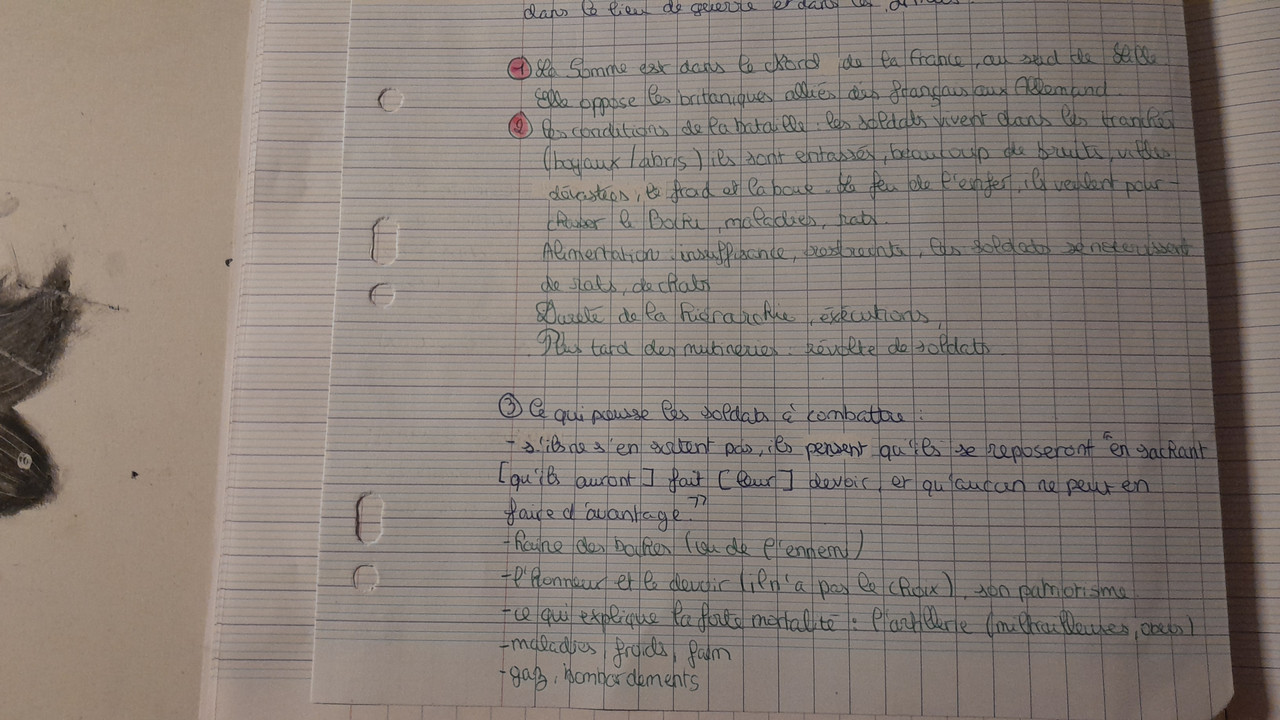 dans le lieu de guerre et dans les
1 La Somme est dans le Nord de la France, au sud de Lille
Elle oppose les britaniques alliés des français aux Allemand.
2 Les conditions de la bataille : les soldats vivent dans les tranchées
(boyaux / abris) ils sont entassés, beaucoup de bruits, villes
dévastées, le froid et la boue. Le feu de l'enfer, ils veulent pour-
chasser le Boche, maladies, rats.
Alimentation : insuffisance, restreints, les soldats se nourrissent
de rats, de chats
Dureté de la hiérarchie, exécutions,
Plus tard des mutineries : révolte de soldats
3 Ce qui pousse les soldats à combattre :
- s'ils ne s'en sortent pas, ils pensent qu'ils se reposeront "en sachant
[qu'ils auront] fait [leur] devoir, et qu'aucun ne peut en
faire d'avantage."
- haine des boches (ou de l'ennemi)
- l'honneur et le devoir (il n'a pas le choix), son patriotisme
- ce qui explique la forte mortalité : l'artillerie (mitrailleuses, obus)
- maladies, froids, faim
- gaz, bombardements